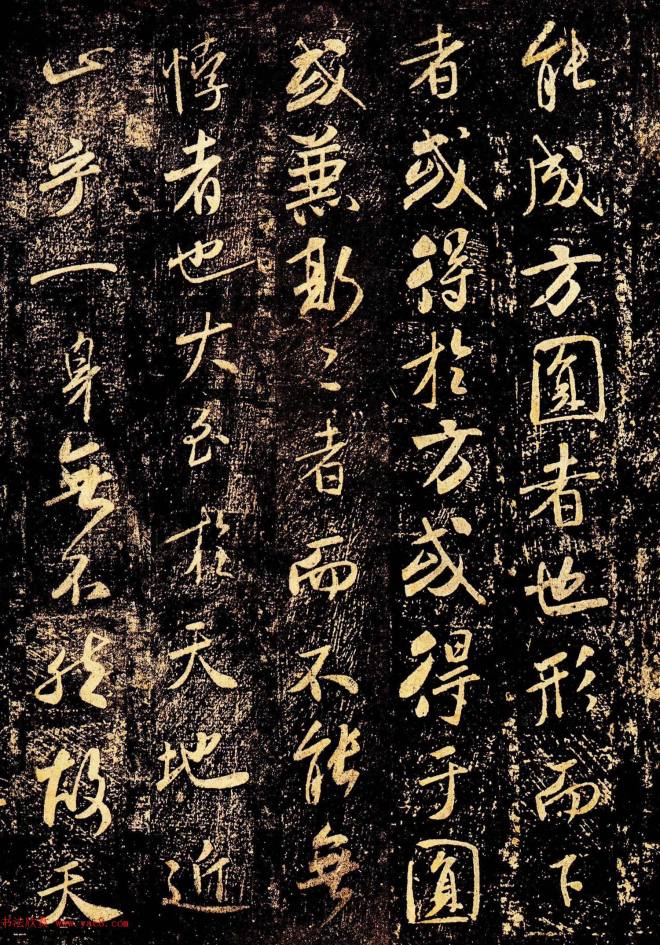 能成方圓者也形而下
者或得於方或得于圓
或兼斯二者而不能無
悖者也大至於天地近
止乎一身無不然故天
书法欣赏 www.yac8.com